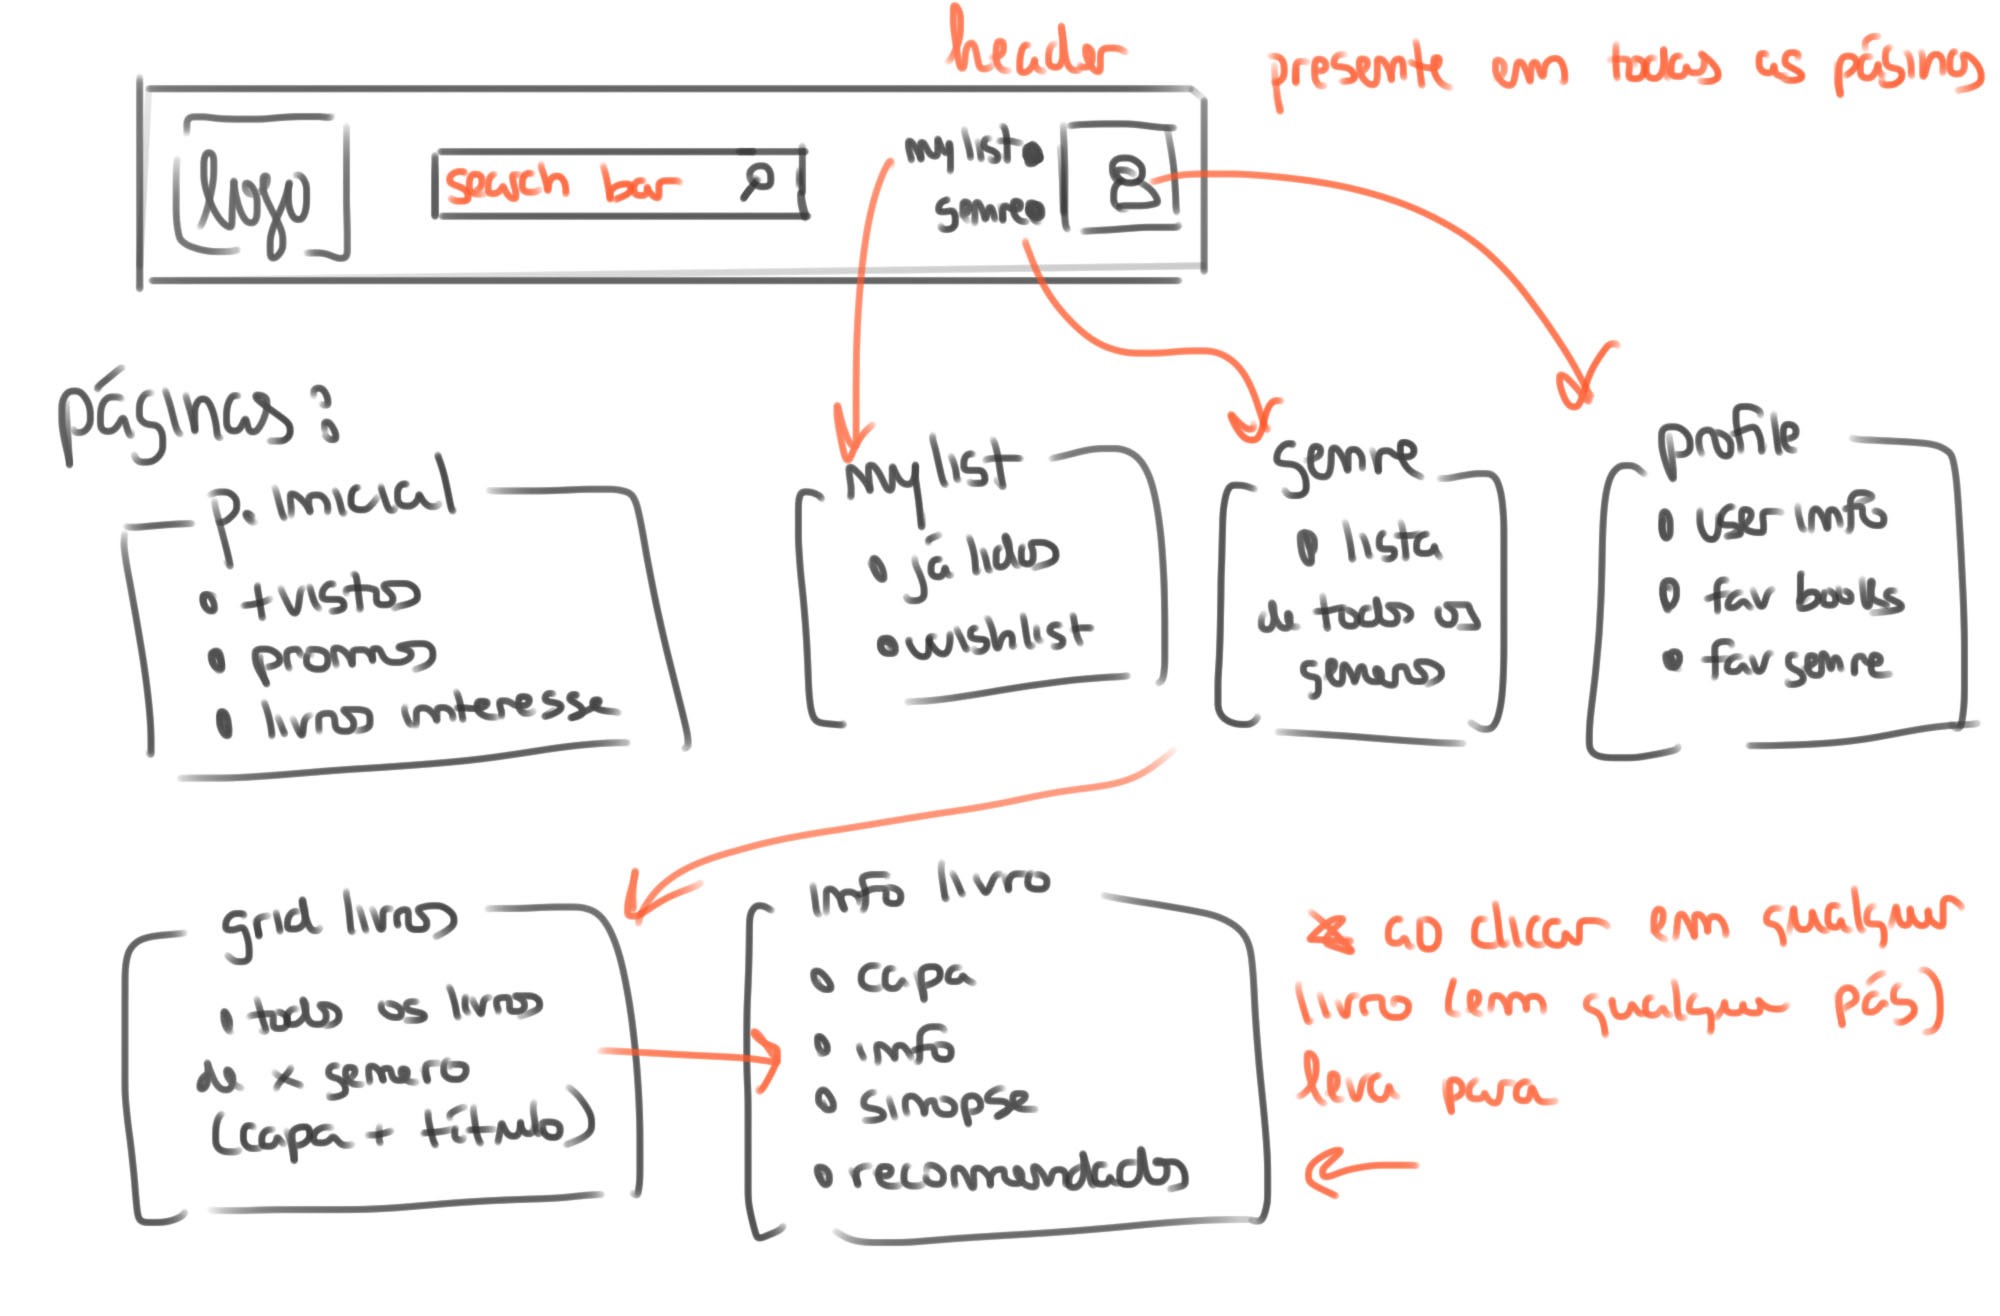 header
presente em todas as páginas
logo
search bar
my list
genre
páginas:
p. inicial
+vistos
promos
livros interesse
my list
já lidos
wishlist
genre
lista
de todos os
generos
profile
user info
fav books
fav genre
grid livros
todos os livros
de x genero
(capa + título)
info livro
capa
info
sinopse
recomendados
* ao clicar em qualquer
livro (em qualquer pág)
leva para